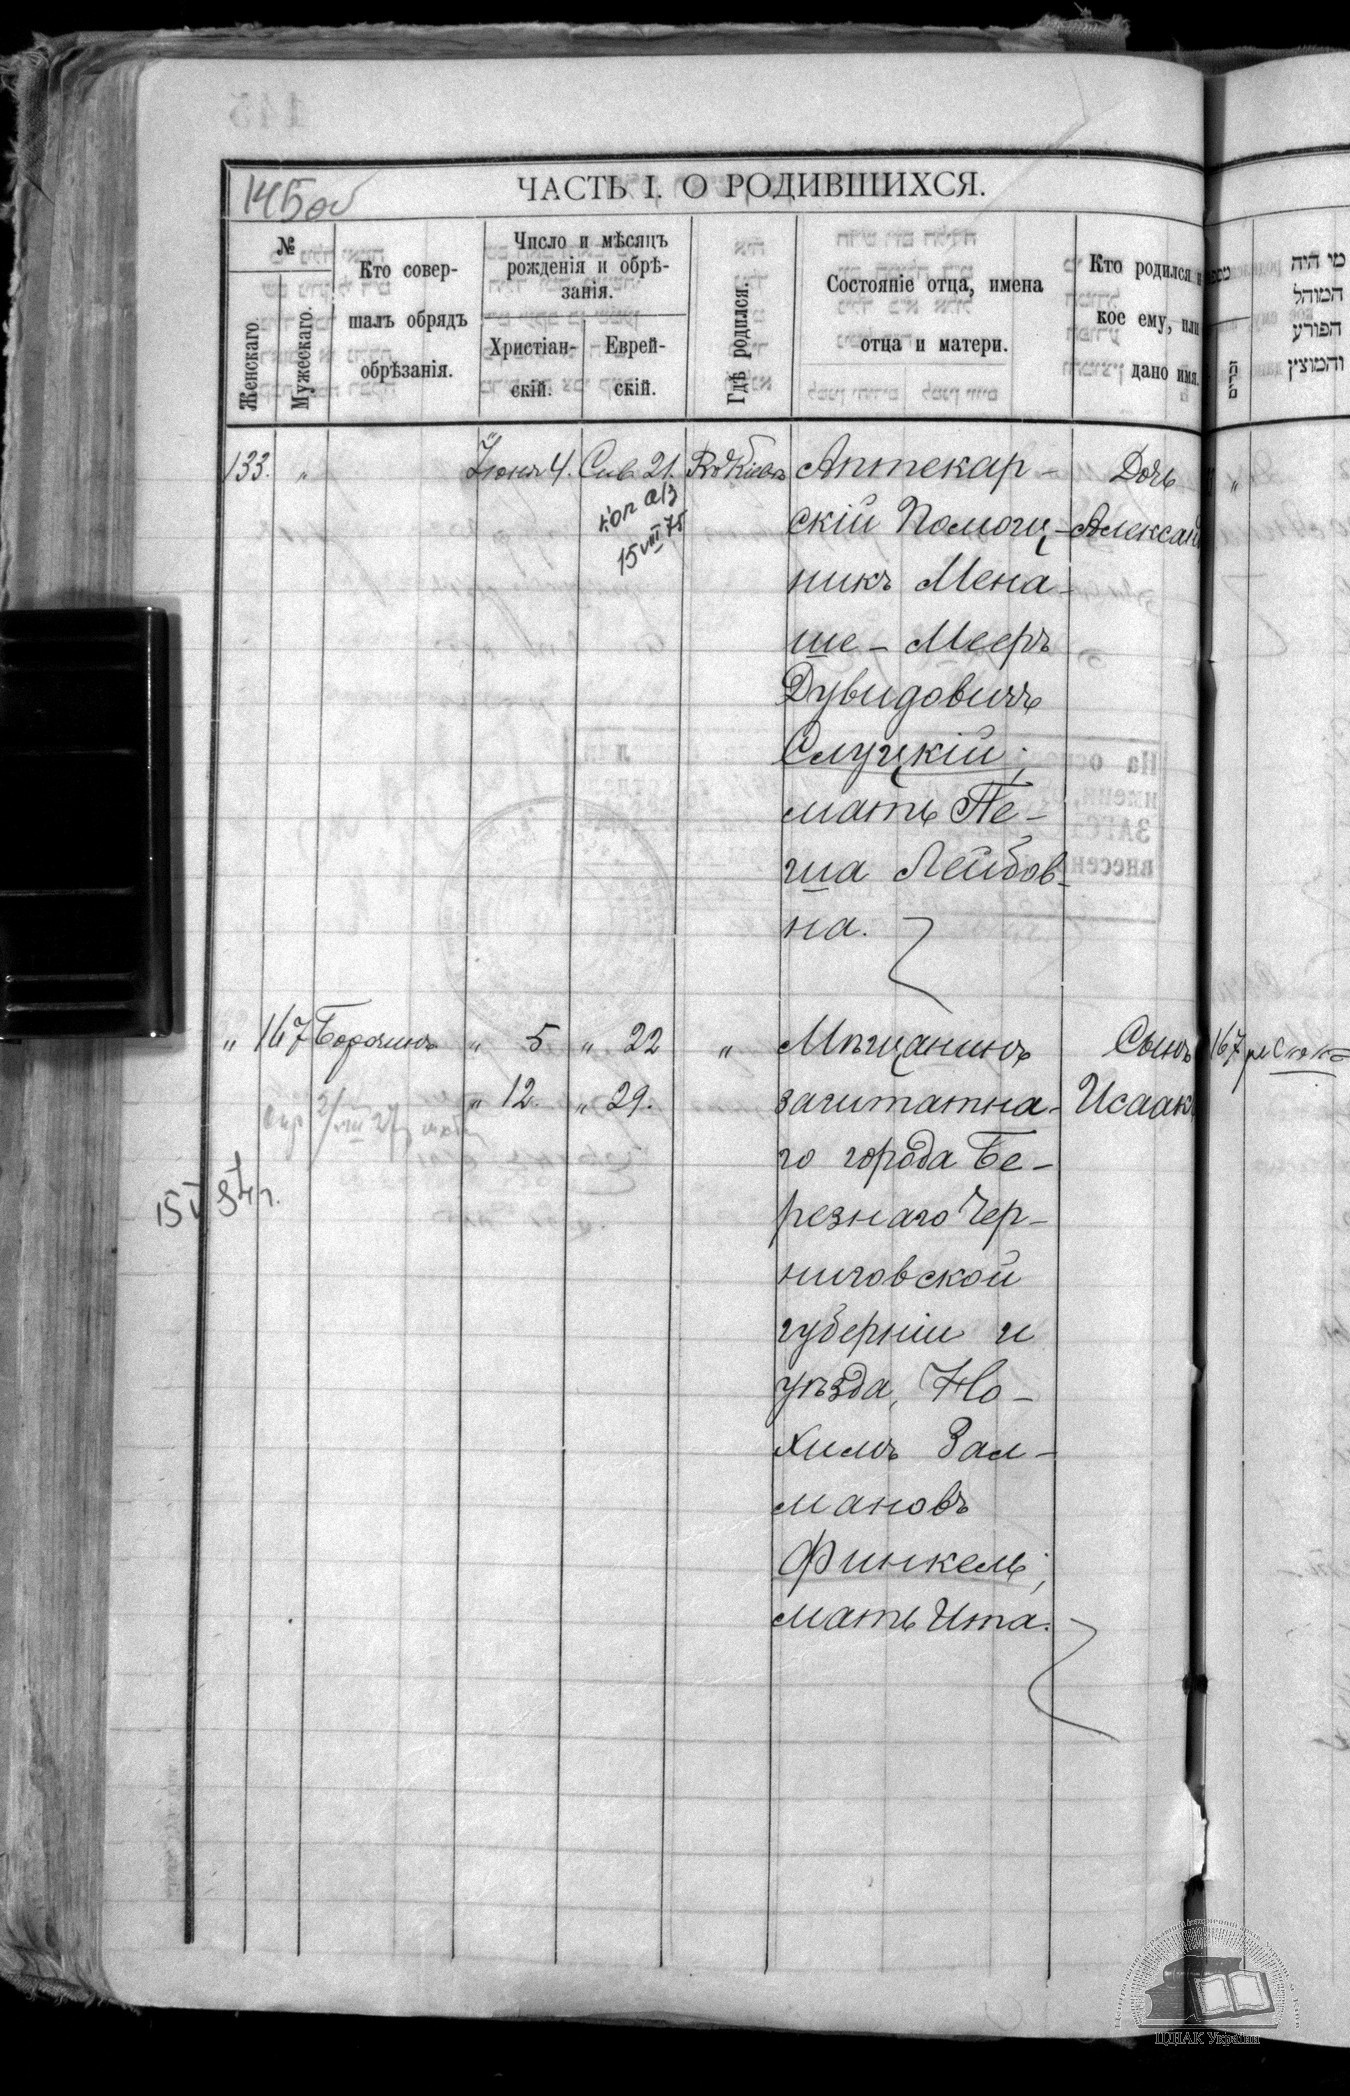 145об
ЧАСТЬ I. О РОДИВШИХСЯ.
№
Женскаго
Мужескаго.
Кто совер-
шалъ обрядъ
обрѣзанія.
Число и мѣсяцъ
рожденія и обрѣ-
занія.
Христіан-
скій.
Еврей-
скій.
Гдѣ родился.
Состояніе отца, имена
отца и матери.
Кто родился и
кое ему, или
дано имя.
מי היה
המוהל
הפורע
והמוצץ
133. „ Іюня 4. Сив. 21. Въ Кіевѣ Аптекар-
скій Помощ-
никъ Мена-
ше-Мееръ
Дувидовичъ
Слуцкій;
мать Пе-
ша Лейбов-
на.
Дочь
Алексан
коп а/з
15 VIII 75
„ 167 „ 5 „ 22 „ Мѣщанинъ
„ 12. „ 29. заштатна-
го города Бе-
резнаго Чер-
ниговской
губерніи и
уѣзда, Но-
химъ Зал-
мановъ
Финкель;
мать Ита.
Сынъ
Исаакъ
167
15 V 34 г.
ЦДІАК України